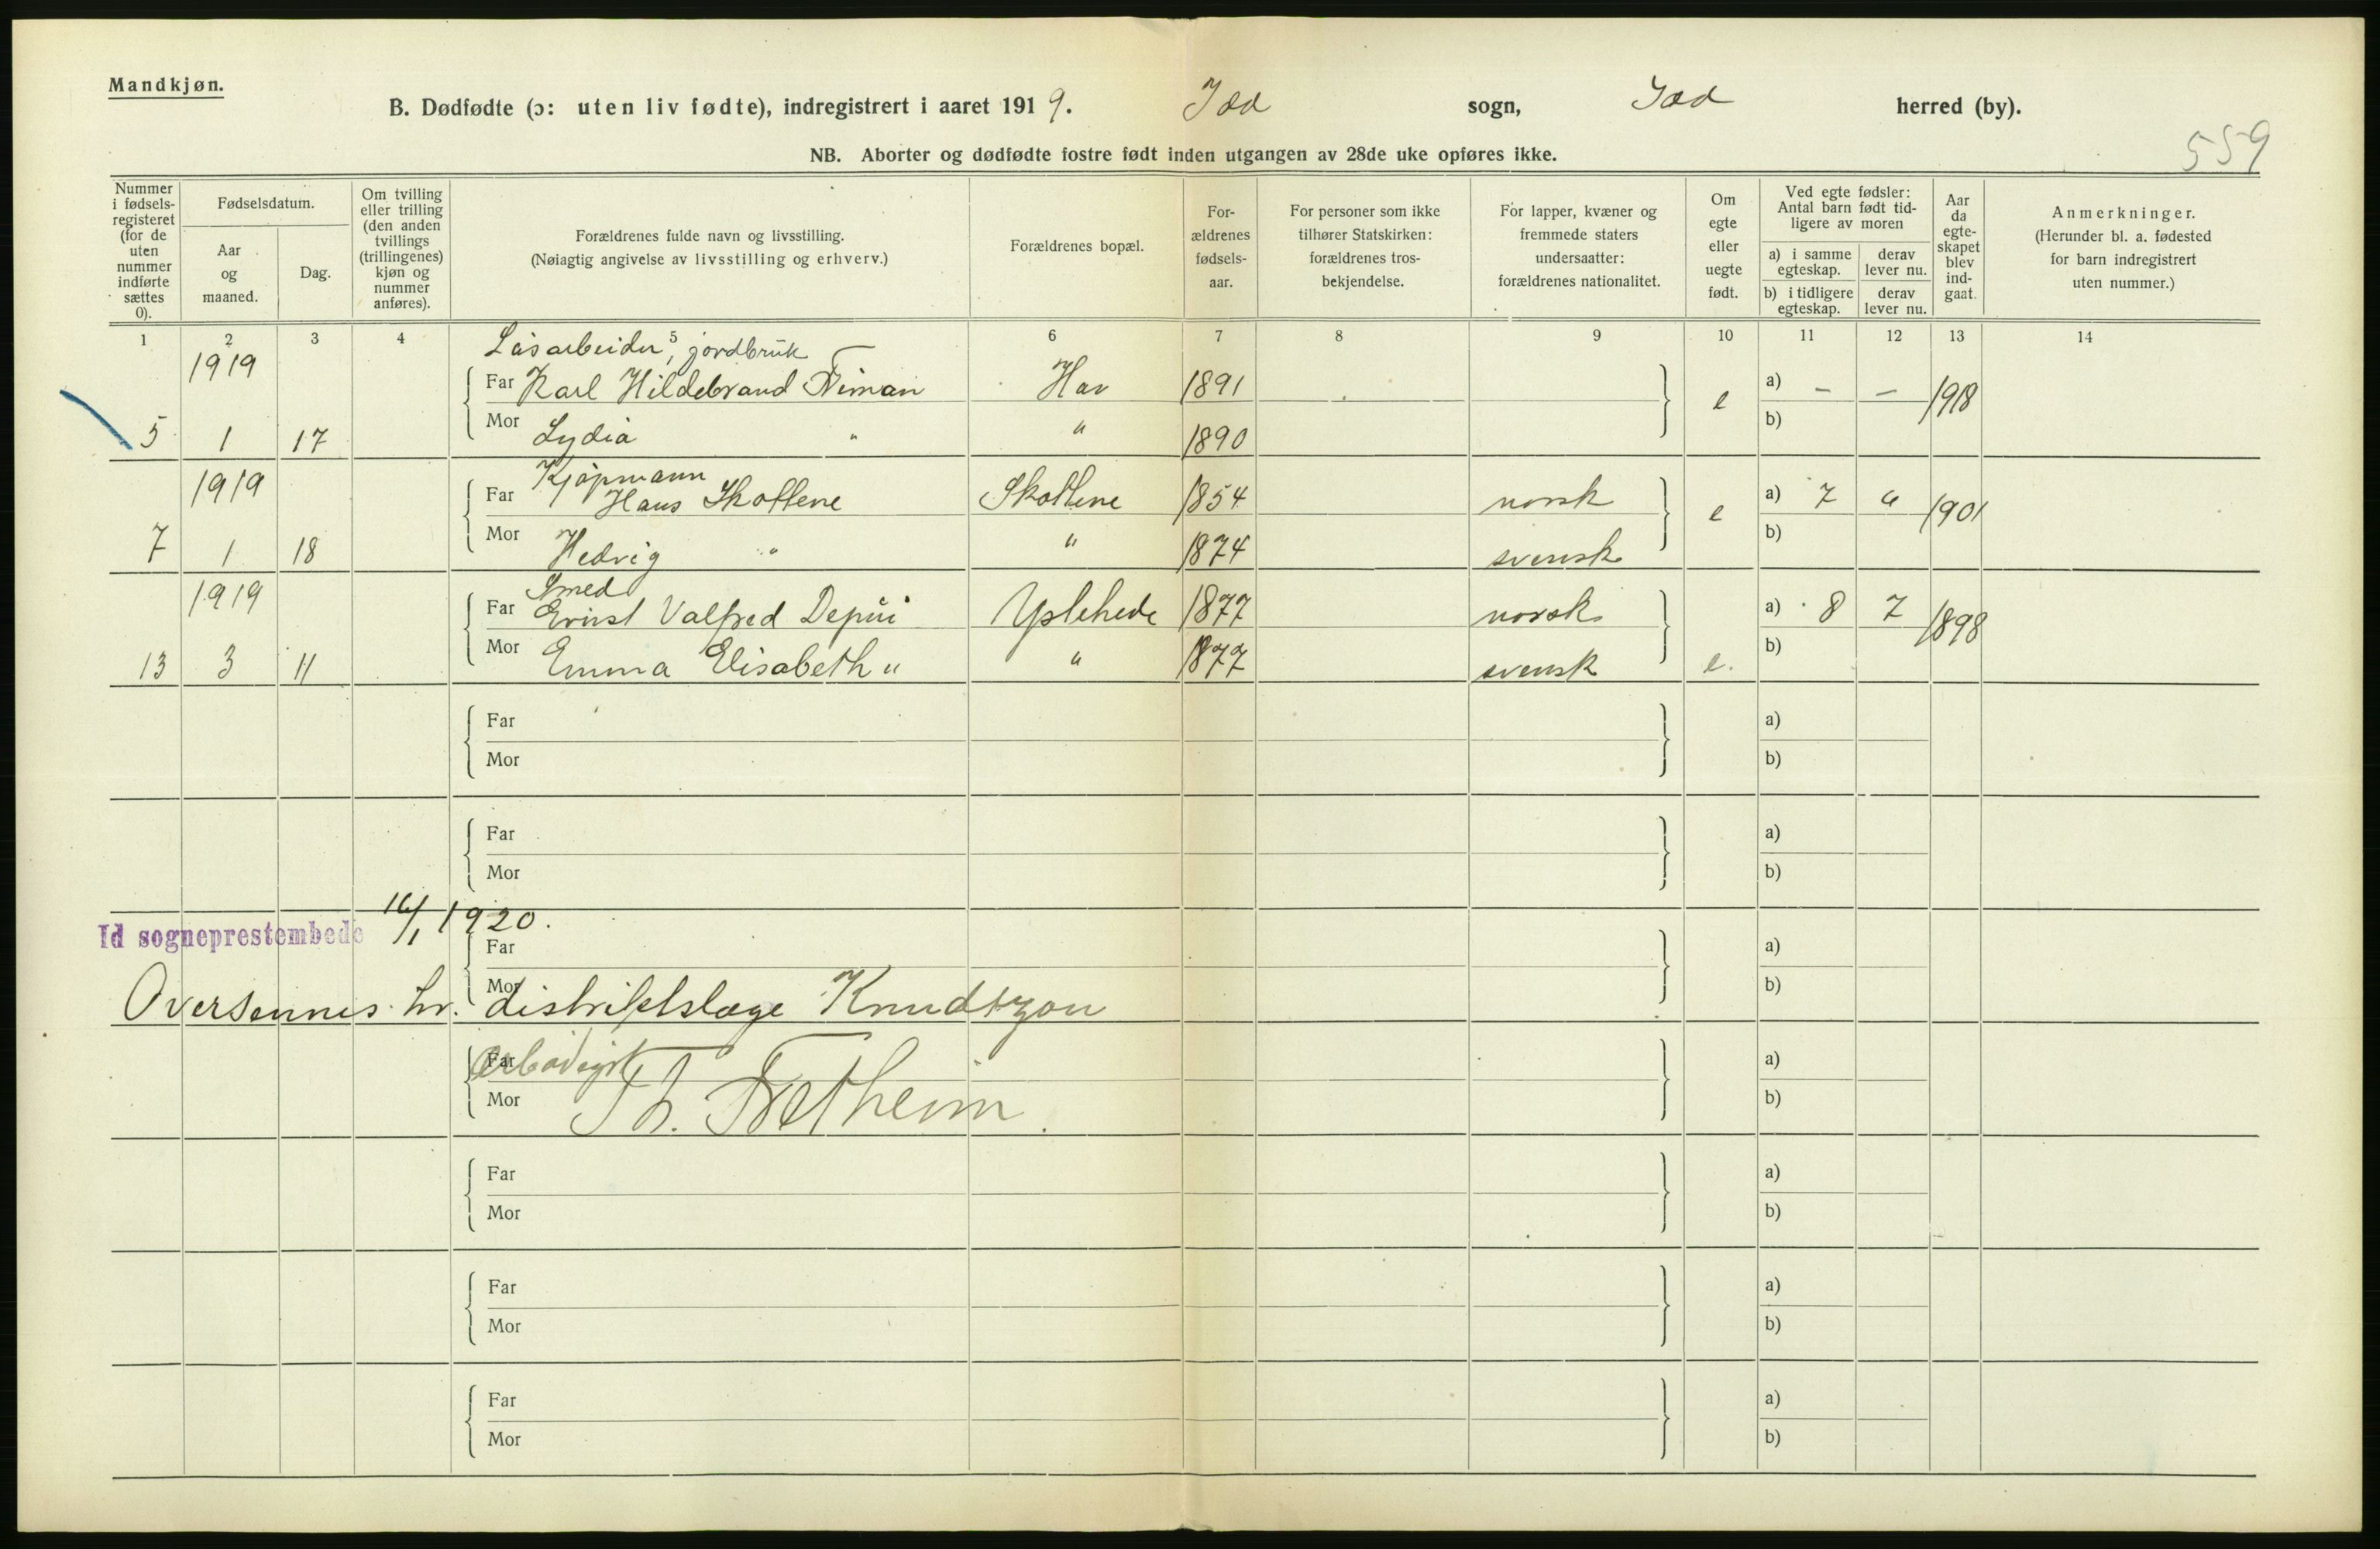 Mandkjøn.
B. Dødfødte (ɔ: uten liv fødte), indregistrert i aaret 1919. Idd sogn, Idd herred (by).
559
NB. Aborter og dødfødte fostre født inden utgangen av 28de uke opføres ikke.
Nummer i fødsels-registeret (for de uten nummer indførte sættes 0).
Fødselsdatum.
Aar og maaned.
Dag.
Om tvilling eller trilling (den anden tvillings (trillingenes) kjøn og nummer anføres).
Forældrenes fulde navn og livsstilling.
(Nøiagtig angivelse av livsstilling og erhverv.)
Forældrenes bopæl.
For-ældrenes fødsels-aar.
For personer som ikke tilhører Statskirken: forældrenes tros-bekjendelse.
For lapper, kvæner og fremmede staters undersaatter: forældrenes nationalitet.
Om egte eller uegte født.
Ved egte fødsler: Antal barn født tid-ligere av moren
a) i samme egteskap.
derav lever nu.
b) i tidligere egteskap.
derav lever nu.
Aar da egte-skapet blev ind-gaat.
Anmerkninger.
(Herunder bl. a. fødested for barn indregistrert uten nummer.)
1 2 3 4 5 6 7 8 9 10 11 12 13 14
Løsarbeider, jordbruk
1919 Far Karl Hildebrand Niman Hav 1891 e a) – – 1918
5 1 17 Mor Lydia " " 1890 b)
Kjøpmann
1919 Far Hans Skottene Skottene 1854 norsk e a) 7 6 1901
7 1 18 Mor Hedvig " " 1874 svensk b)
Smed
1919 Far Ernst Valfred Depui Ystehede 1877 norsk a) 8 7 1898
13 3 11 Mor Emma Elisabeth " " 1877 svensk e. b)
Far a)
Mor b)
Far a)
Mor b)
Id sogneprestembede 16/1 1920.
Far a)
Mor b)
Oversennes hr. distriktslæge Knudtzon
Far a)
Ærbødigst
Mor b)
Th. Fretheim.
Far a)
Mor b)
Far a)
Mor b)
Far a)
Mor b)